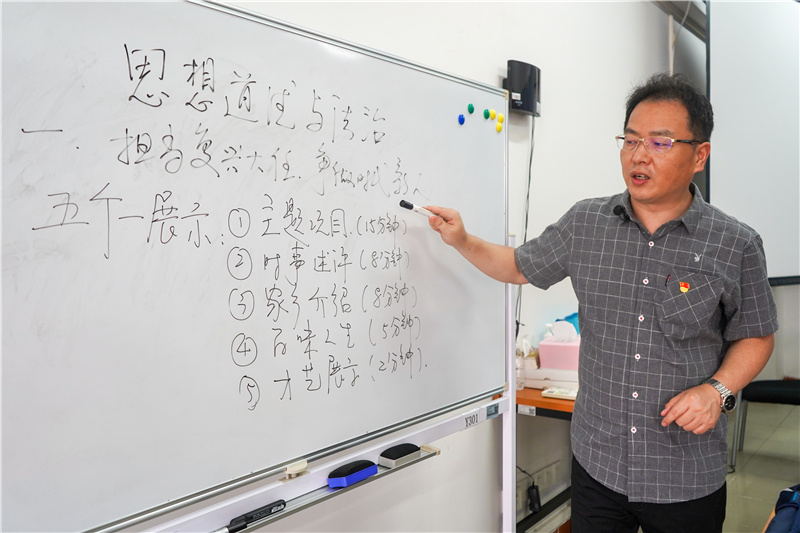 思想道德与法治
一. 担当复兴大任, 争做时代新人
五个一展示: ① 主题项目 (15分钟)
② 时事述评 (8分钟)
③ 家乡介绍 (8分钟)
④ 百味人生 (5分钟)
⑤ 才艺展示 (2分钟).
X301